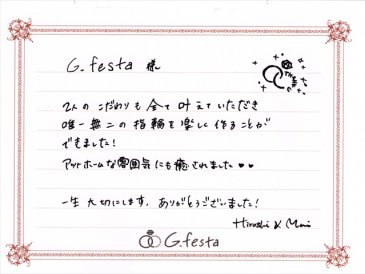 G.festa 様
2人のこだわりも全て叶えていただき
唯一無二の指輪を楽しく作ることが
できました!
アットホームな雰囲気にも癒されました♥♥
一生大切にします。ありがとうございました!
Hiroshi & Mari
G.festa